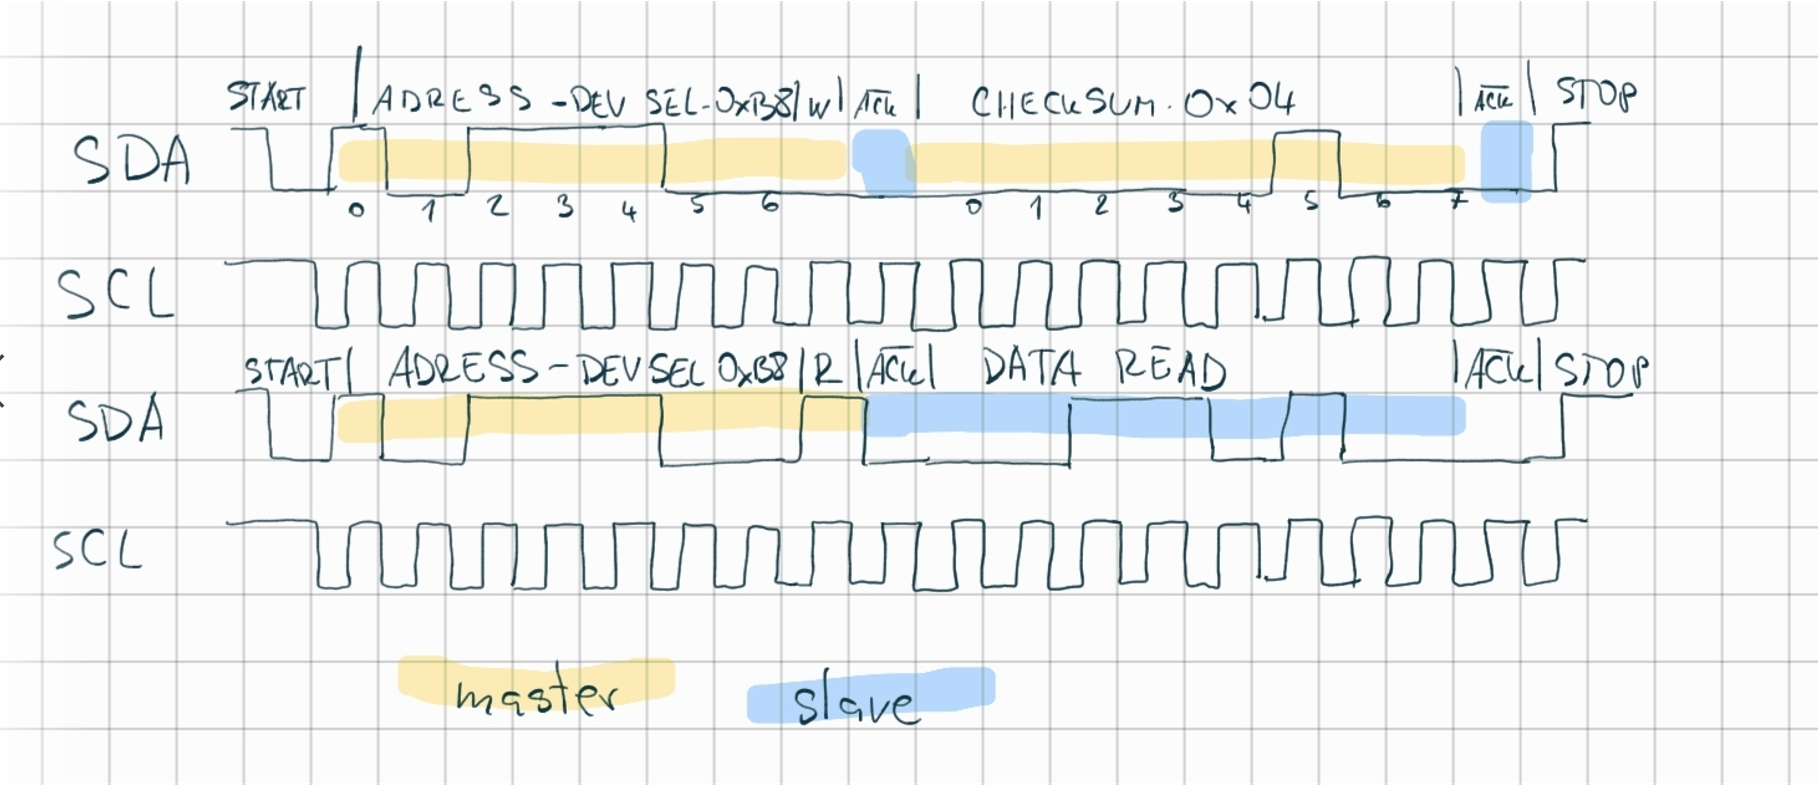 START | ADRESS - DEV SEL-0xB8 | W | ACK | CHECKSUM. 0x04 | ACK | STOP
SDA
0 1 2 3 4 5 6 0 1 2 3 4 5 6 7
SCL
START | ADRESS - DEVSEL 0xB8 | R | ACK | DATA READ | ACK | STOP
SDA
SCL
master slave